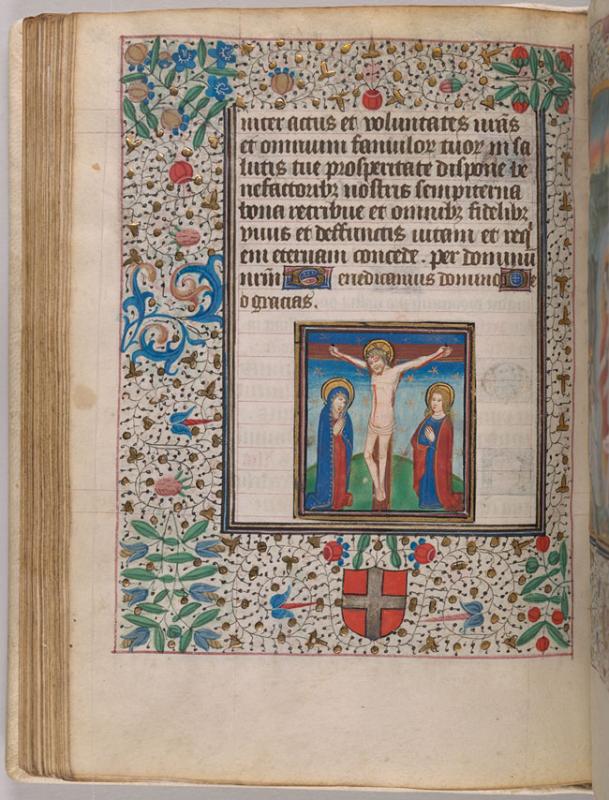 uicer actus et voluntates nr̄as
et omnium famulor tuor in sa
lutis tue prosperitate dispone be
nefactoribȝ nostris sempiterna
bona retribue et omnibȝ fidelibȝ
viuis et deffunctis uitam et req̄
em eternam concede. per dominū
nr̄m enedicamus domino e
o gracias.